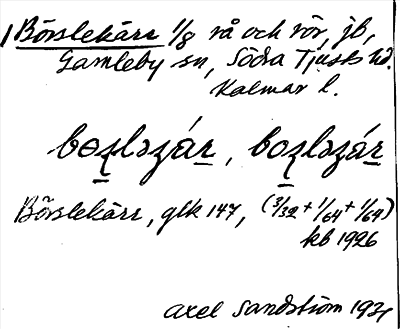 Börslekärr 1/8 rå och rör, jb,
Gamleby sn, Södra Tjusts hd.
Kalmar l.
bɵʐləʒár, boʐləʒár
Börslekärr, gtk 147, (3/32 + 1/64 + 1/64)
kb 1926
Axel Sandström 1931